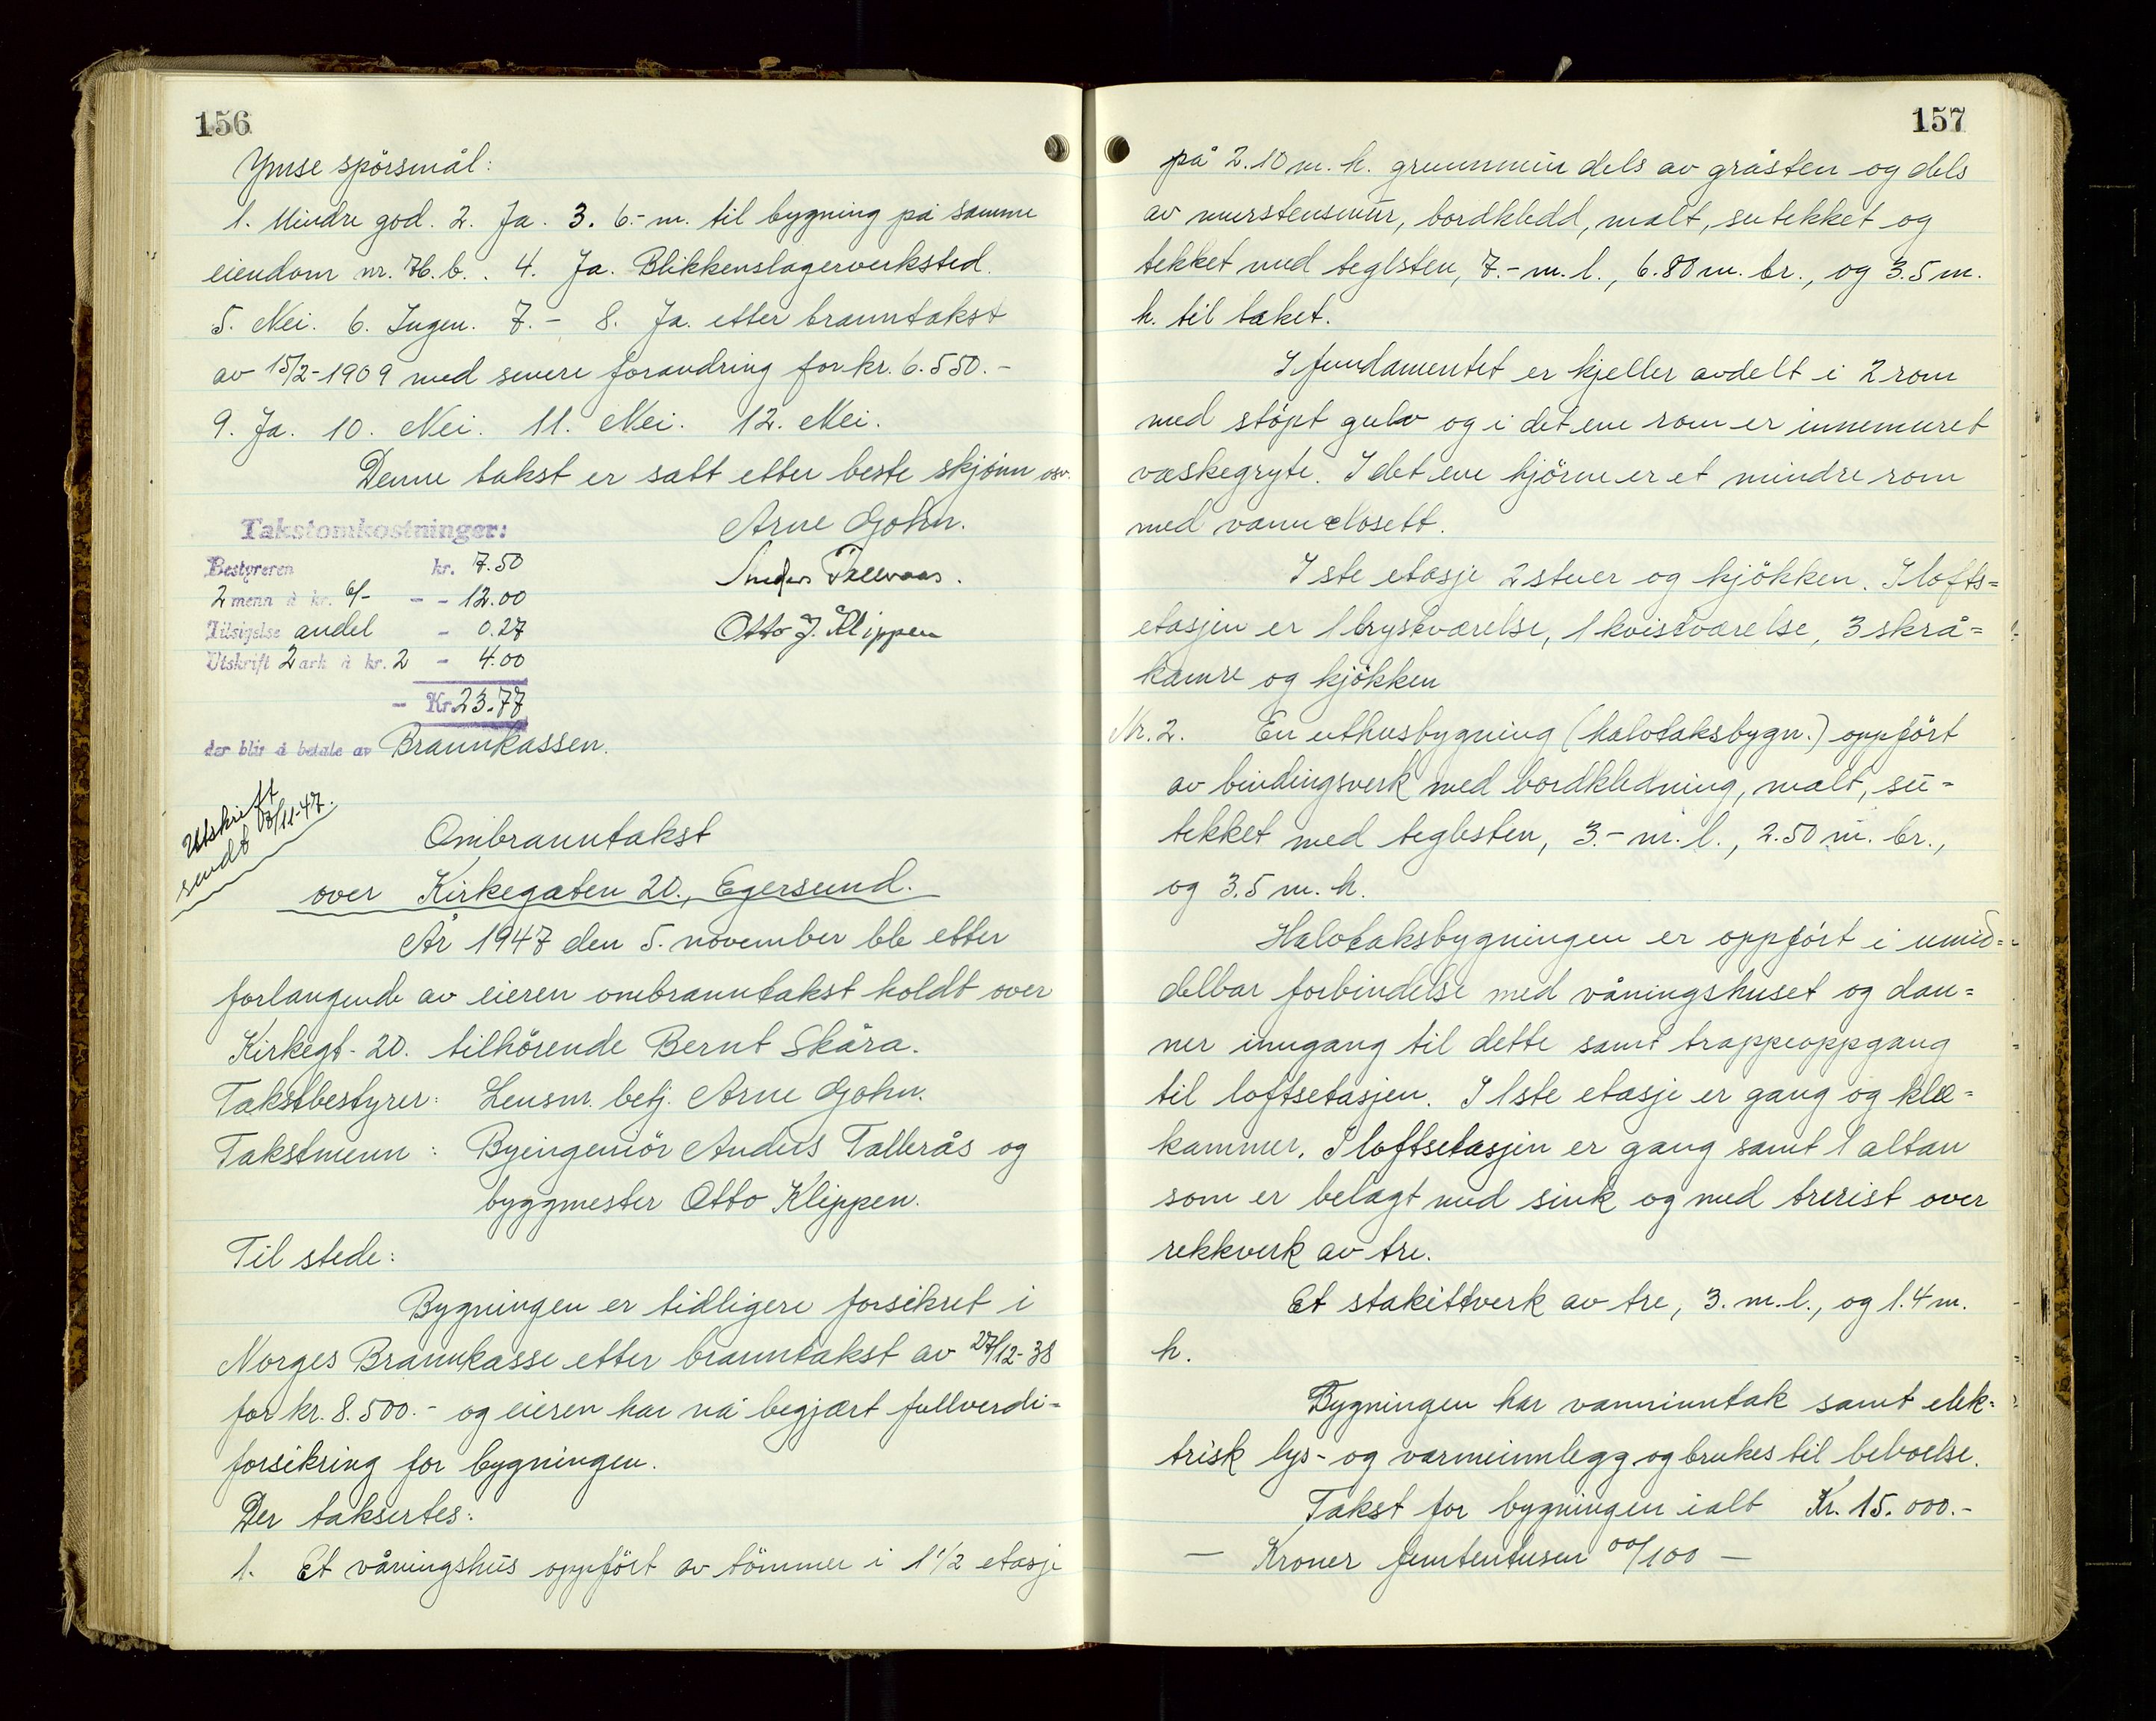 156
Ymse spörsmål:
1. Mindre god. 2. Ja. 3. 6.- m. til bygning på samme
eiendom nr. 76. b. . 4. Ja. Blikkenslagerverksted.
5. Nei. 6. Ingen. 7. - 8. Ja. etter branntakst
av 15/2-1909 med senere forandring for kr. 6.550.-
9. Ja. 10. Nei. 11. Nei. 12. Nei.
Denne takst er satt etter beste skjönn osv.
Takstomkostninger:
Bestyreren kr. 7.50
2 menn à kr. 6/- - - 12.00
Tilsigelse andel - 0.27
Utskrift 2 ark à kr. 2 - 4.00
- Kr. 23.77
der blir å betale av Brannkassen.
Arne Gohn.
Anders Tallraas.
Otto J. Klippen
Utskrift
sendt 13/11-47.
Ombranntakst
over Kirkegaten 20., Egersund.
År 1947 den 5. november ble etter
forlangende av eieren ombranntakst holdt over
Kirkegt- 20. tilhörende Bernt Skåra.
Takstbestyrer: Lensm. betj. Arne Gohn.
Takstmenn: Byeingeniör Anders Tallerås og
byggmester Otto Klippen.
Til stede:
Bygningen er tidligere forsikret i
Norges Brannkasse etter branntakst av 27/12-38
for kr. 8.500.- og eieren har nå begjært fullverdi-
forsikring for bygningen.
Der taksertes:
1. Et våningshus oppfört av tömmer i 1 1/2 etasje
157
på 2.10 m. h. grunnmur dels av gråsten og dels
av murstensmur, bordkledd, malt, sutekket og
tekket med teglsten, 7.- m. l., 6.80 m. br., og 3.5 m.
h. til taket.
I fundamentet er kjeller avdelt i 2 rom
med stöpt gulv og i det ene rom er innemuret
vaskegryte. I det ene hjörne er et mindre rom
med vannclosett.
I ste etasje 2 stuer og kjökken. I lofts=
etasjen er 1 brystværelse, 1 kvistværelse, 3 skrå=
kamre og kjökken
Nr. 2. En uthusbygning (halvtaksbygn.) oppfört
av bindingsverk med bordkledning, malt, su-
tekket med teglsten, 3.- m. l., 2.50 m. br.,
og 3.5 m. h.
Halvtaksbygningen er oppfört i umid=
delbar forbindelse med våningshuset og dan=
ner inngang til dette samt trappeoppgang
til loftsetasjen. I 1ste etasje er gang og kle=
kammer. I loftsetasjen er gang samt 1 altan
som er belagt med sink og med trerist over
rekkverk av tre.
Et stakittverk av tre, 3. m. l., og 1.4 m.
h.
Bygningen har vanninntak samt elek=
trisk lys- og varmeinnlegg og brukes til beboelse.
Takst for bygningen ialt Kr. 15.000.-
— Kroner femtentusen 00/100 —